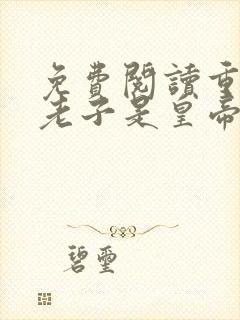 免費閱讀重
老子是皇帝
碧璽